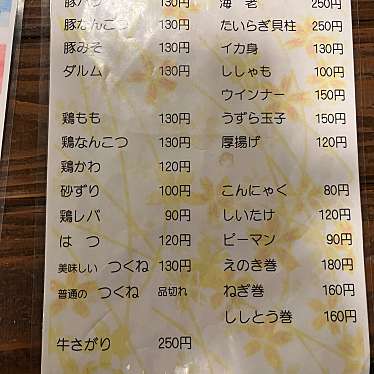 豚バラ 130円
豚なんこつ 130円
豚みそ 130円
ダルム 130円
鶏もも 130円
鶏なんこつ 130円
鶏かわ 120円
砂ずり 100円
鶏レバ 90円
はつ 120円
美味しい つくね 130円
普通の つくね 品切れ
牛さがり 250円
海老 250円
たいらぎ貝柱 250円
イカ身 130円
ししゃも 100円
ウインナー 150円
うずら玉子 150円
厚揚げ 120円
こんにゃく 80円
しいたけ 120円
ピーマン 90円
えのき巻 180円
ねぎ巻 160円
ししとう巻 160円